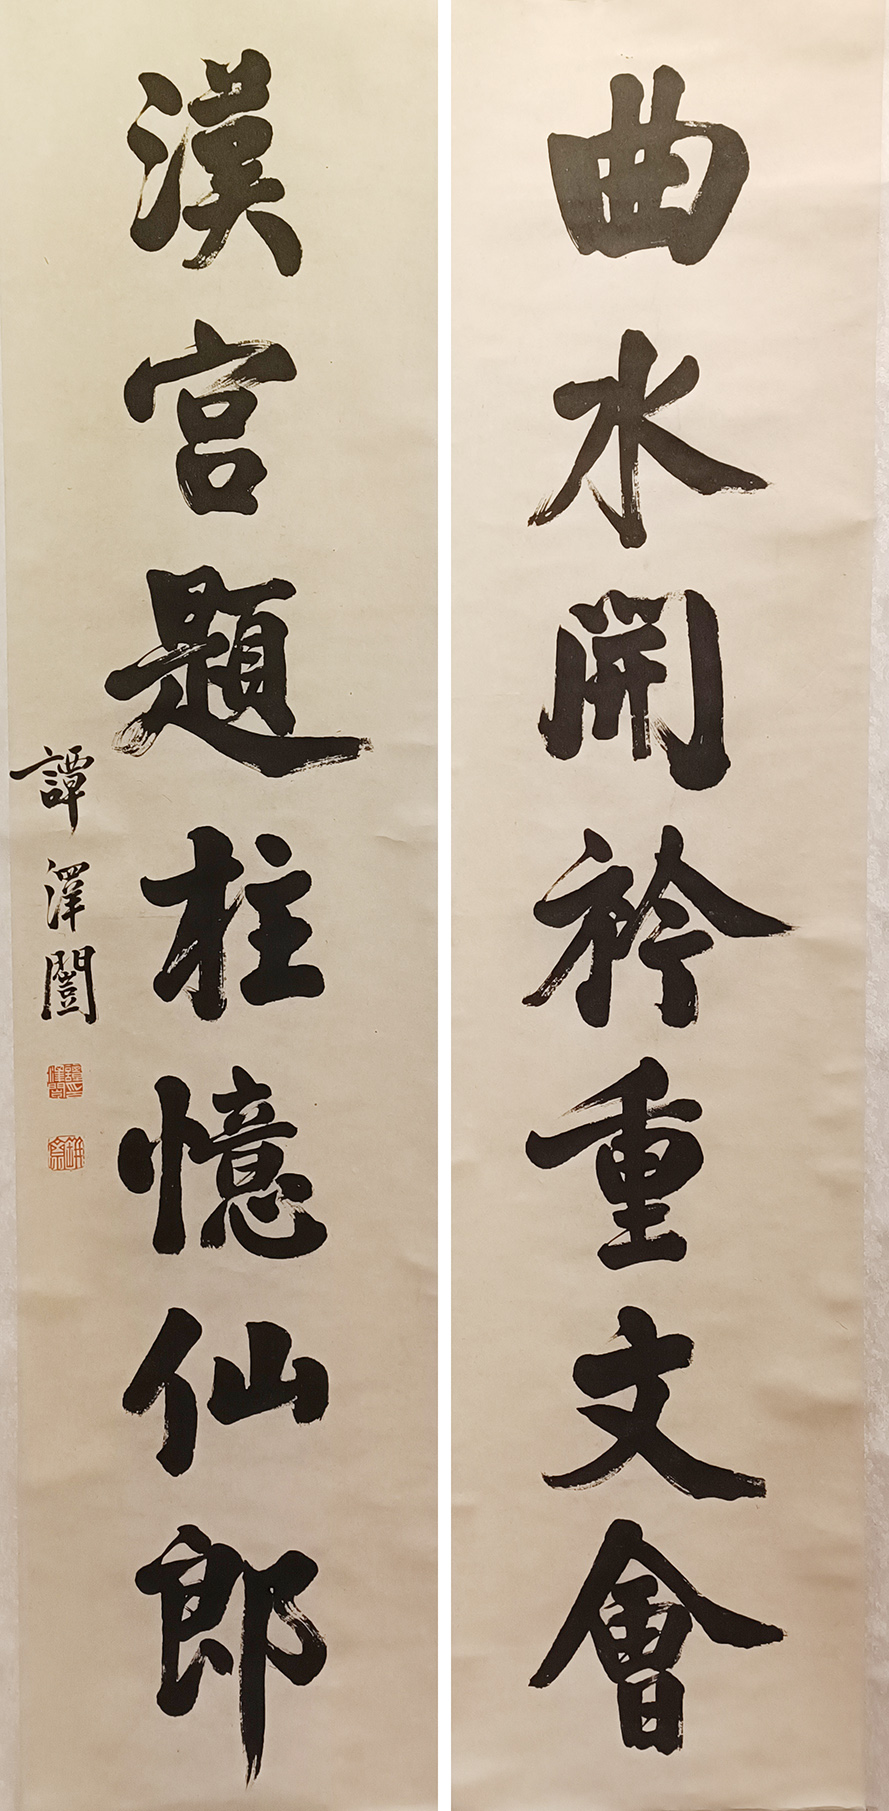 曲水開衿重文會
漢宮題柱憶仙郎
譚澤闓